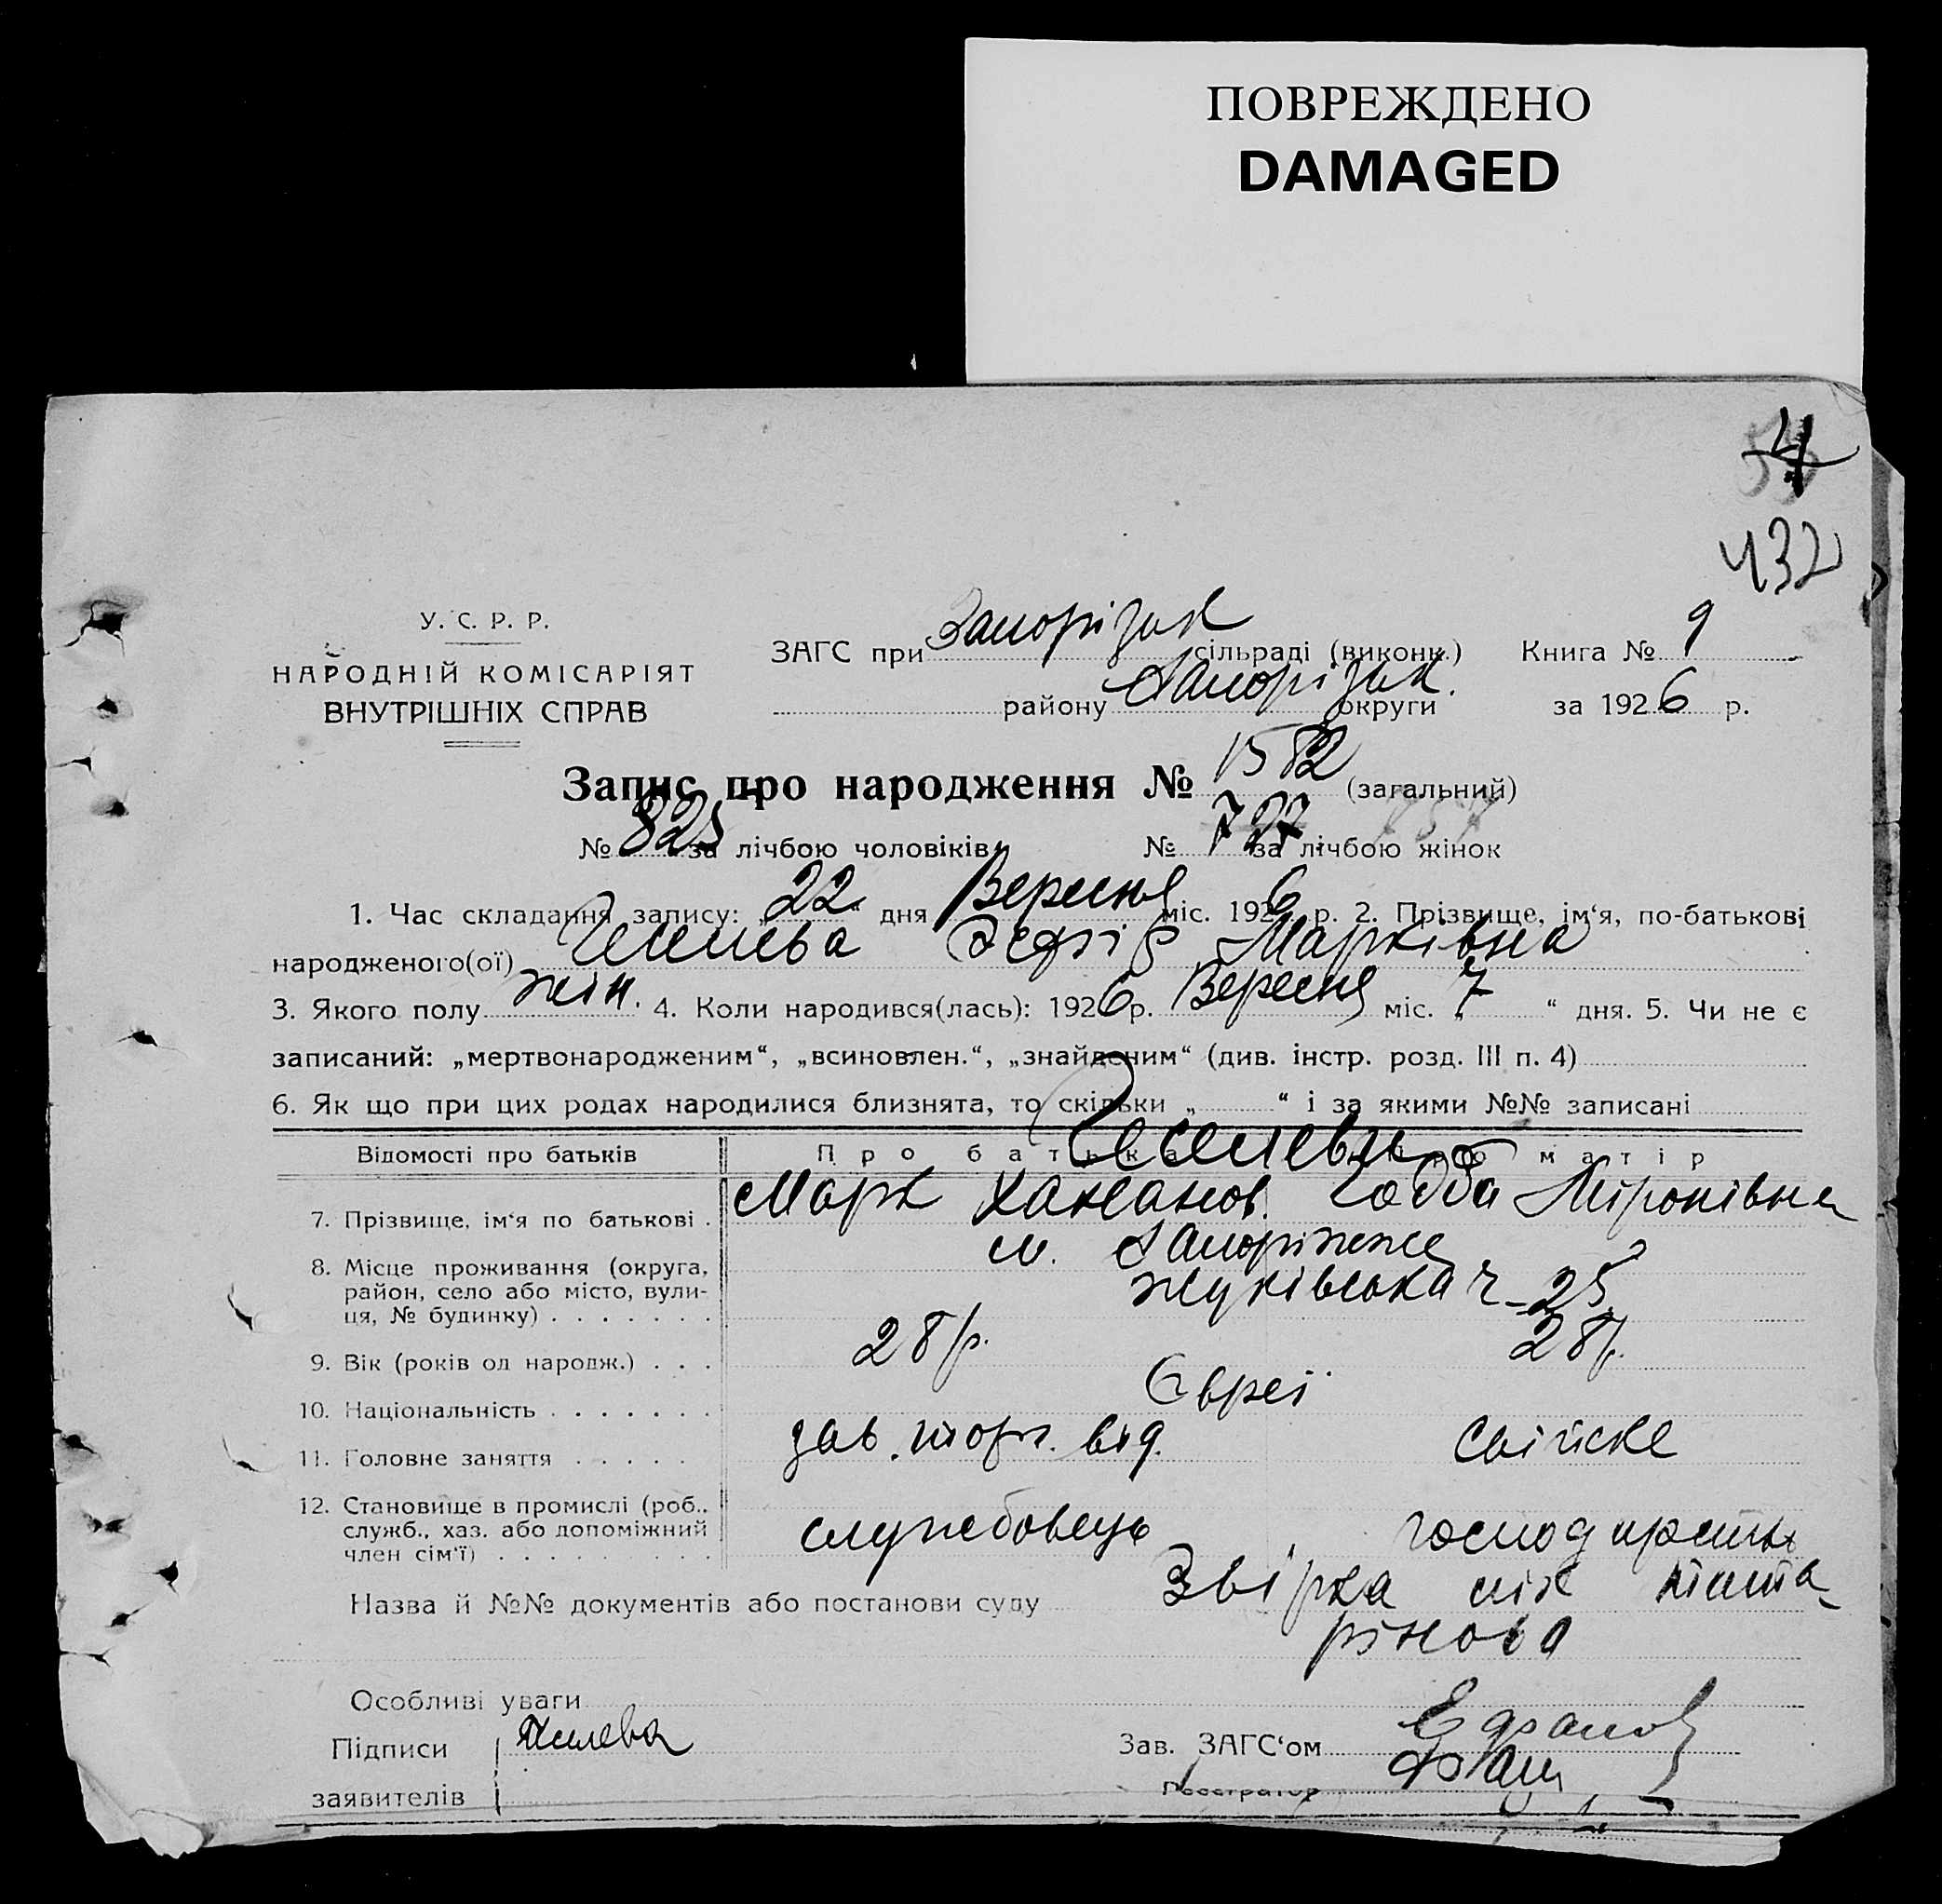 ПОВРЕЖДЕНО
DAMAGED
4
432
У. С. Р. Р.
НАРОДНІЙ КОМІСАРІЯТ
ВНУТРІШНІХ СПРАВ
ЗАГС при Запорізьк сільраді (виконк.) Книга № 9
району Запорізьк. округи за 1926 р.
Запис про народження № 1582 (загальний)
№ 825 за лічбою чоловіків № 727 за лічбою жінок 757
1. Час складання запису: „22“ дня Вересня міс. 1926 р. 2. Прізвище, ім‘я, по-батькові
народженого(ої) Марківна
3. Якого полу жін. 4. Коли народився(лась): 1926 р. Вересня міс. „7“ дня. 5. Чи не є
записаний: „мертвонародженим“, „всиновлен.“, „знайденим“ (див. інстр. розд. III п. 4)
6. Як що при цих родах народилися близнята, то скільки „ “ і за якими №№ записані
Відомості про батьків Про батька Про матір
7. Прізвище, ім‘я по батькові . Марк Хананов. Миронівна
8. Місце проживання (округа, м. Запоріжже
район, село або місто, вули- Жуківська 25
ця, № будинку) . . . . . . .
9. Вік (років од народж.) . . . 28 р. 28 р.
10. Національність . . . . . . . Євреї
11. Головне заняття . . . . . зав. торг. від. свійске
12. Становище в промислі (роб.. службовець господарство
служб., хаз. або допоміжний
член сім‘ї) . . . . . . . . .
Назва й №№ документів або постанови суду Звірка
Особливі уваги
Підписи
заявителів
Зав. ЗАГС‘ом
Реєстратор